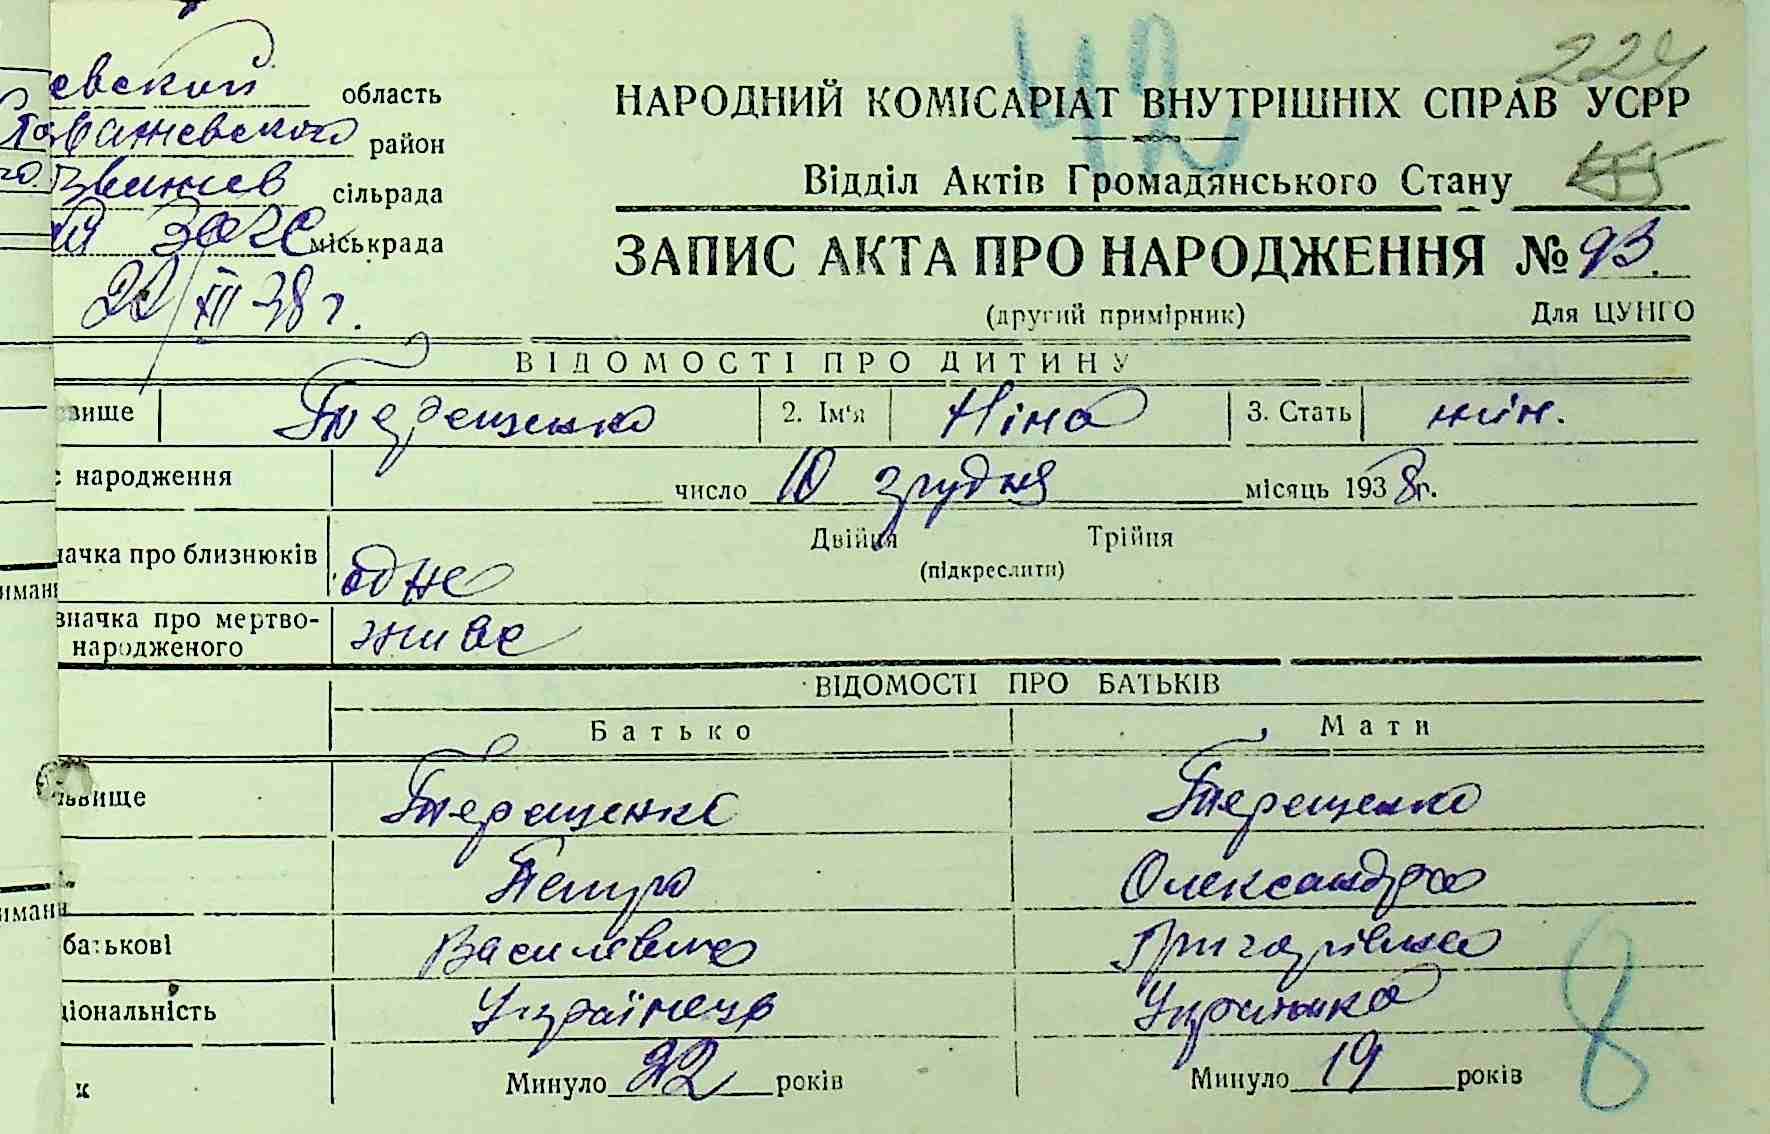 евский область
район
сільрада
ЗАГС міськрада
22/XII 38 г.
224
42
НАРОДНИЙ КОМІСАРІАТ ВНУТРІШНІХ СПРАВ УСРР
Відділ Актів Громадянського Стану
ЗАПИС АКТА ПРО НАРОДЖЕННЯ № 93.
(другий примірник) Для ЦУНГО
ВІДОМОСТІ ПРО ДИТИНУ
вище Терещенко 2. Ім'я Ніна 3. Стать жін.
с народження число 10 грудня місяць 1938 г.
начка про близнюків одне Двійця Трійця
(підкреслити)
значка про мертво-
народженого живе
ВІДОМОСТІ ПРО БАТЬКІВ
Батько Мати
звище Терещенко Терещенко
Петро Олександра
батькові Василєвич Григорівна
ціональність Українець Українка
к Минуло 22 років Минуло 19 років
8